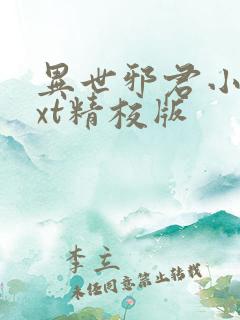 異世邪君小
xt精校版
李立
未经同意禁止转载